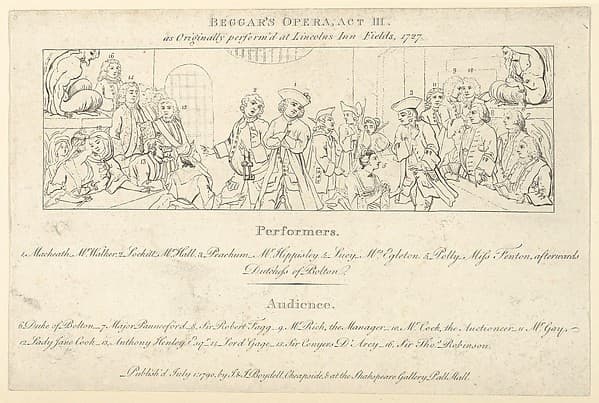 BEGGAR'S OPERA, ACT III.
as Originally perform'd at Lincolns Inn Fields, 1727.
Performers.
1, Macheath, Mr. Walker. 2, Lockitt, Mr. Hall. 3, Peachum, Mr. Hippisley. 4, Lucy, Mrs. Egleton. 5, Polly, Miss Fenton, afterwards
Dutchess of Bolton.
Audience.
6, Duke of Bolton_ 7, Major Paunceford_ 8, Sir Robert Fagg_ 9, Mr. Rich, the Manager_ 10, Mr. Cock, the Auctioneer_ 11, Mr. Gay_
12, Lady Jane Cook_ 13, Anthony Henley, Esqr._ 14, Lord Gage_ 15, Sir Conyers D'Arcy_ 16, Sir Thos. Robinson.
Publish'd July 1: 1790, by J. & J. Boydell, Cheapside, & at the Shakspeare Gallery, Pall Mall.